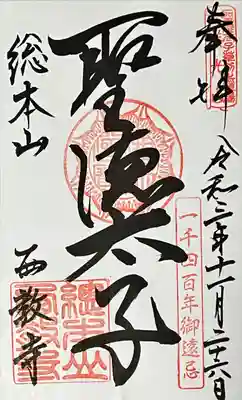 奉拝
令和三年十一月二十六日
一千四百年御遠忌
聖徳太子
総本山
西教寺